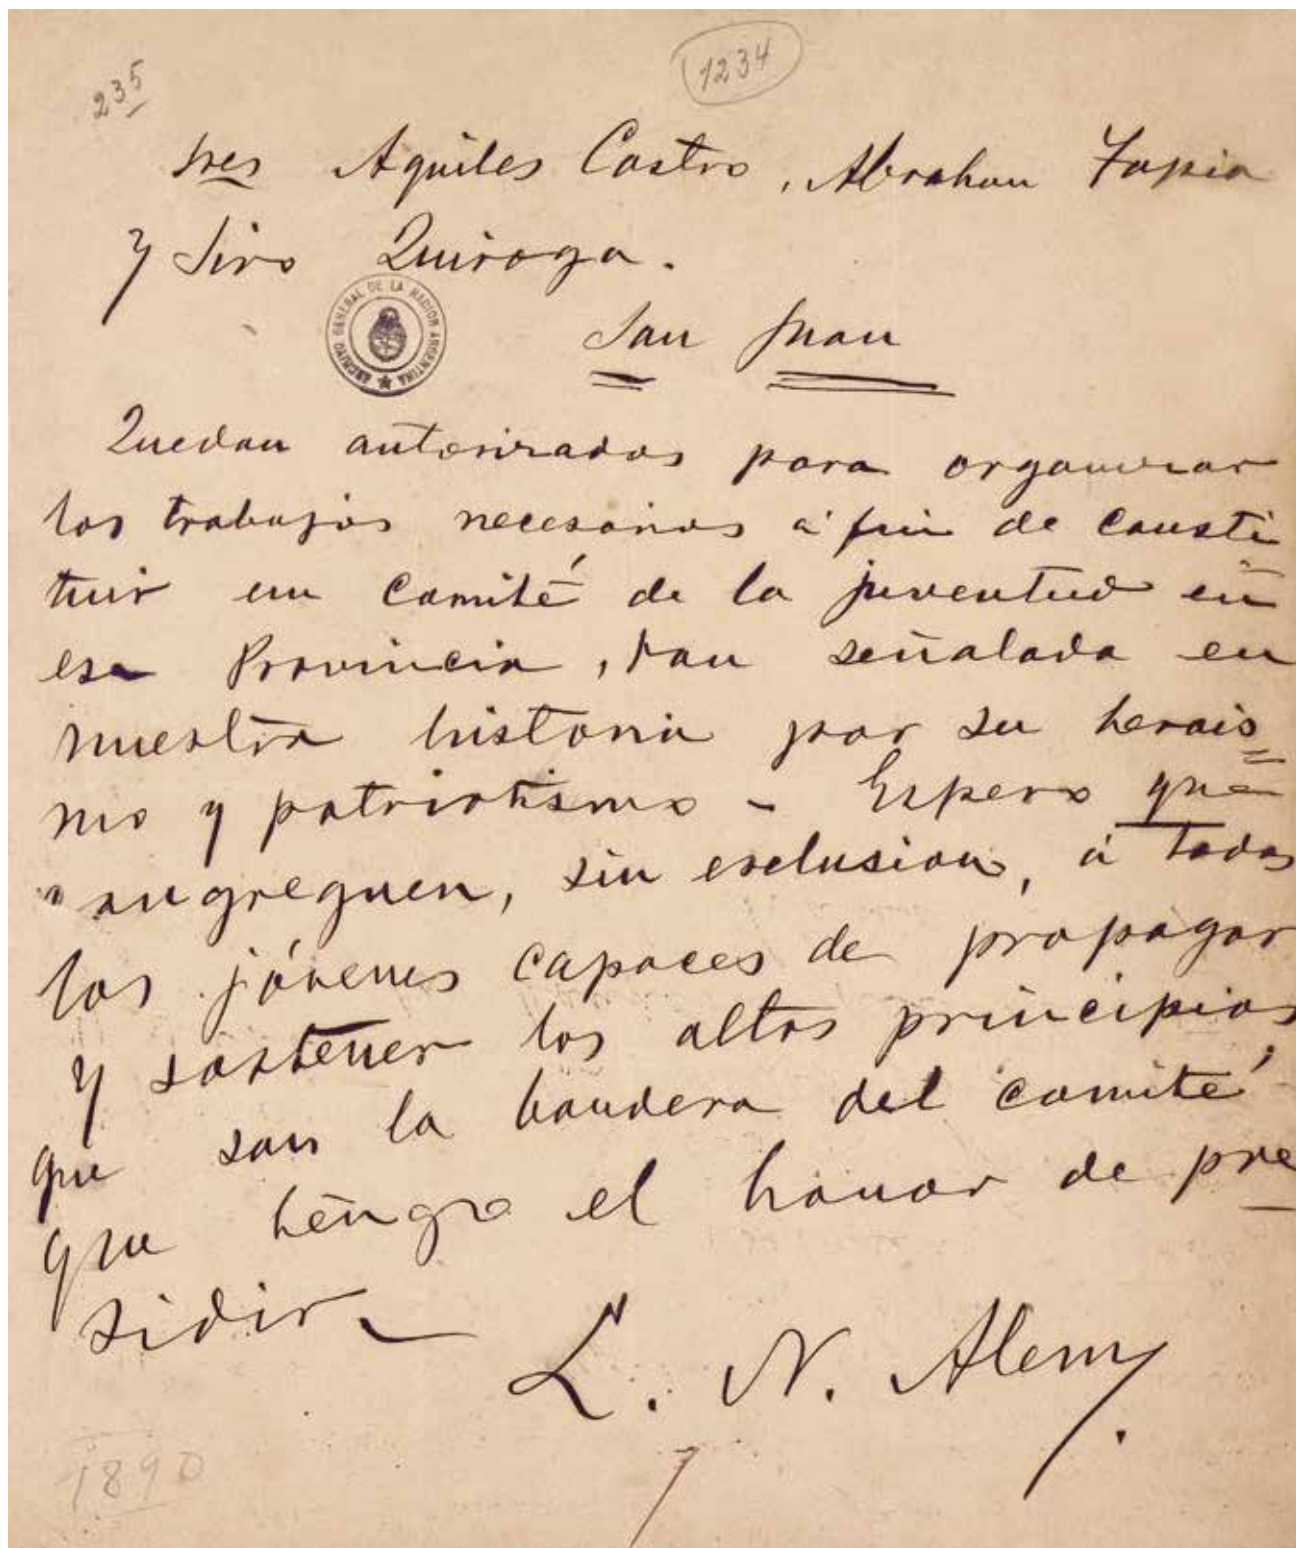 235
1234
Sres Aquiles Castro, Abrahan Tapia
y Siro Quiroga.
ARCHIVO GENERAL DE LA NACION ARGENTINA
San Juan
Quedan autorizados para organizar
los trabajos necesarios á fin de consti
tuir un Comité de la juventud en
esa Provincia, tan señalada en
nuestra historia por su herois=
mo y patriotismo - Espero que
congreguen, sin esclusion, á todos
los jóvenes capaces de propagar
y sostener los altos principios
que son la bandera del comité
que tengo el honor de pre
sidir_
L. N. Alem.
1890